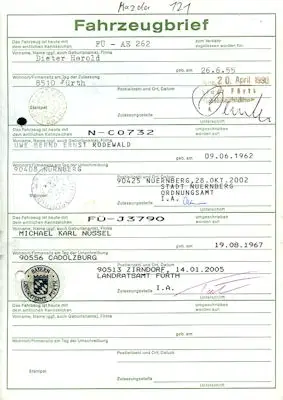 Mazda 121
Fahrzeugbrief
Das Fahrzeug ist heute mit dem amtlichen Kennzeichen
FÜ - AS 262
zum Verkehr zugelassen worden für:
Vorname, Name (ggf. auch Geburtsname), Firma
Dieter Herold
geb. am 26.6.55
Wohnort/Firmensitz am Tag der Zulassung
8510 Fürth
20. April 1990
Postleitzahl und Ort, Datum
Fürth
Stempel
Zulassungsstelle
Unterschrift
Das Fahrzeug ist heute mit dem amtlichen Kennzeichen
N-C0732
umgeschrieben worden auf:
Vorname, Name (ggf. auch Geburtsname), Firma
UWE BERND ERNST RODEWALD
geb. am 09.06.1962
Wohnort/Firmensitz am Tag der Umschreibung
90408 NUERNBERG
Postleitzahl und Ort, Datum
90425 NUERNBERG, 28.OKT.2002
STADT NUERNBERG
ORDNUNGSAMT
Stempel
Zulassungsstelle
I.A.
Unterschrift
Das Fahrzeug ist heute mit dem amtlichen Kennzeichen
FÜ-J3790
umgeschrieben worden auf:
Vorname, Name (ggf. auch Geburtsname), Firma
MICHAEL KARL NÜSSEL
geb. am 19.08.1967
Wohnort/Firmensitz am Tag der Umschreibung
90556 CADOLZBURG
Postleitzahl und Ort, Datum
90513 ZIRNDORF, 14.01.2005
LANDRATSAMT FÜRTH
BAYERN
Zulassungsstelle
I.A.
Unterschrift
Das Fahrzeug ist heute mit dem amtlichen Kennzeichen
umgeschrieben worden auf:
Vorname, Name (ggf. auch Geburtsname), Firma
geb. am
Wohnort/Firmensitz am Tag der Umschreibung
Postleitzahl und Ort, Datum
Stempel
Zulassungsstelle
Unterschrift